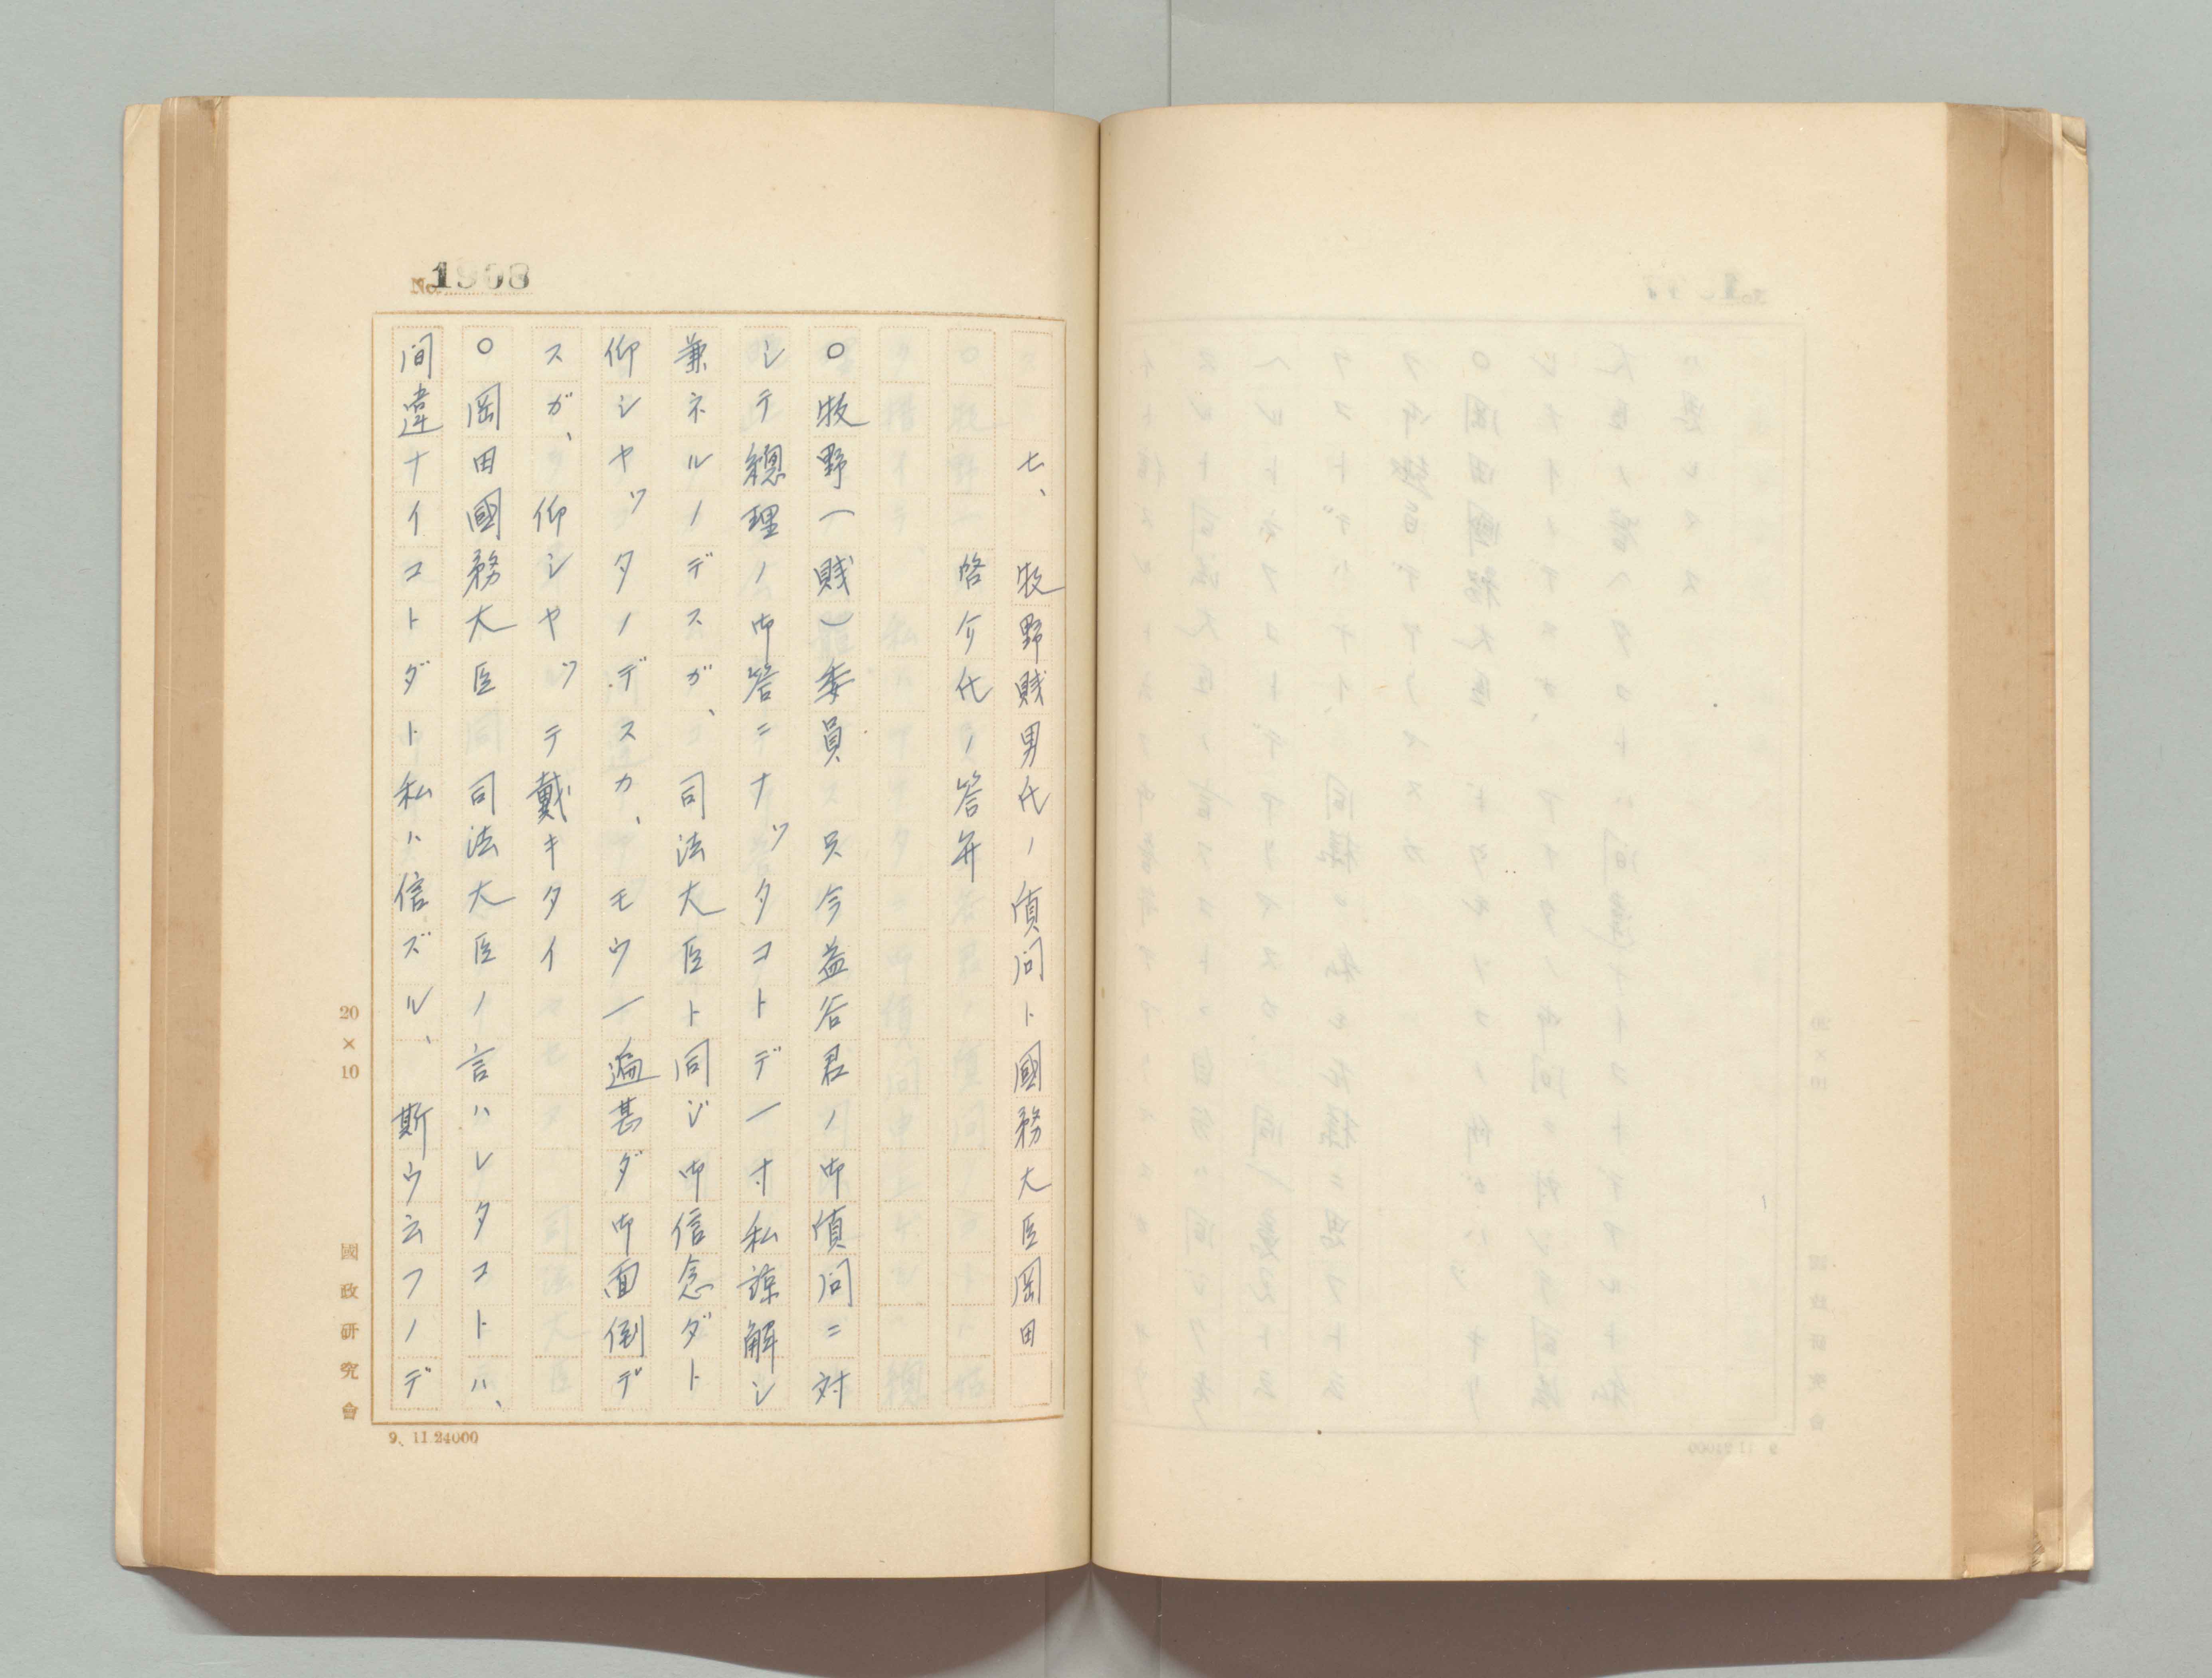 No. 1908
七、牧野賤男氏ノ質問ト國務大臣岡田
啓介氏ノ答弁
○牧野(賤)委員 只今益谷君ノ御質問ニ対
シテ總理ノ御答ニナツタコトデ一寸私諒解シ
兼ネルノデスガ、司法大臣ト同ジ御信念ダト
仰シヤツタノデスカ、モウ一遍甚ダ御面倒デ
スガ、仰シヤツテ戴キタイ
○岡田國務大臣 司法大臣ノ言ハレタコトハ、
間違ナイコトダト私ハ信ズル、斯ウ云フノデ
20×10
國政研究會
9、11.24000